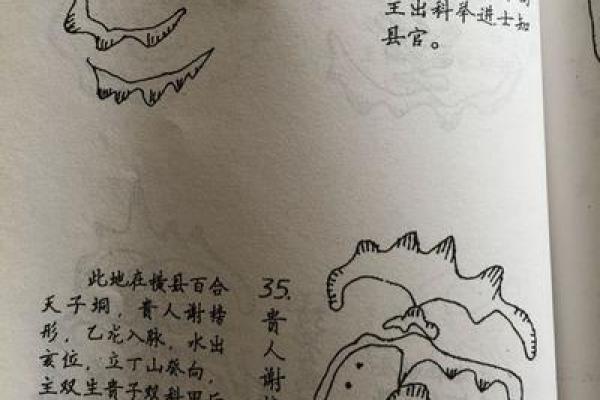 王出科举进士知
县官。
35.
贵人谢
此地在横县百合
天子垌，贵人谢榜
形，乙龙入脉，水出
玄位，立丁山癸向，
主双生贵子双科甲